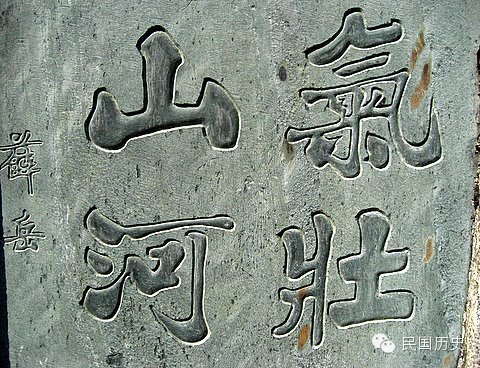 氣壯
山河
薛岳
民国历史